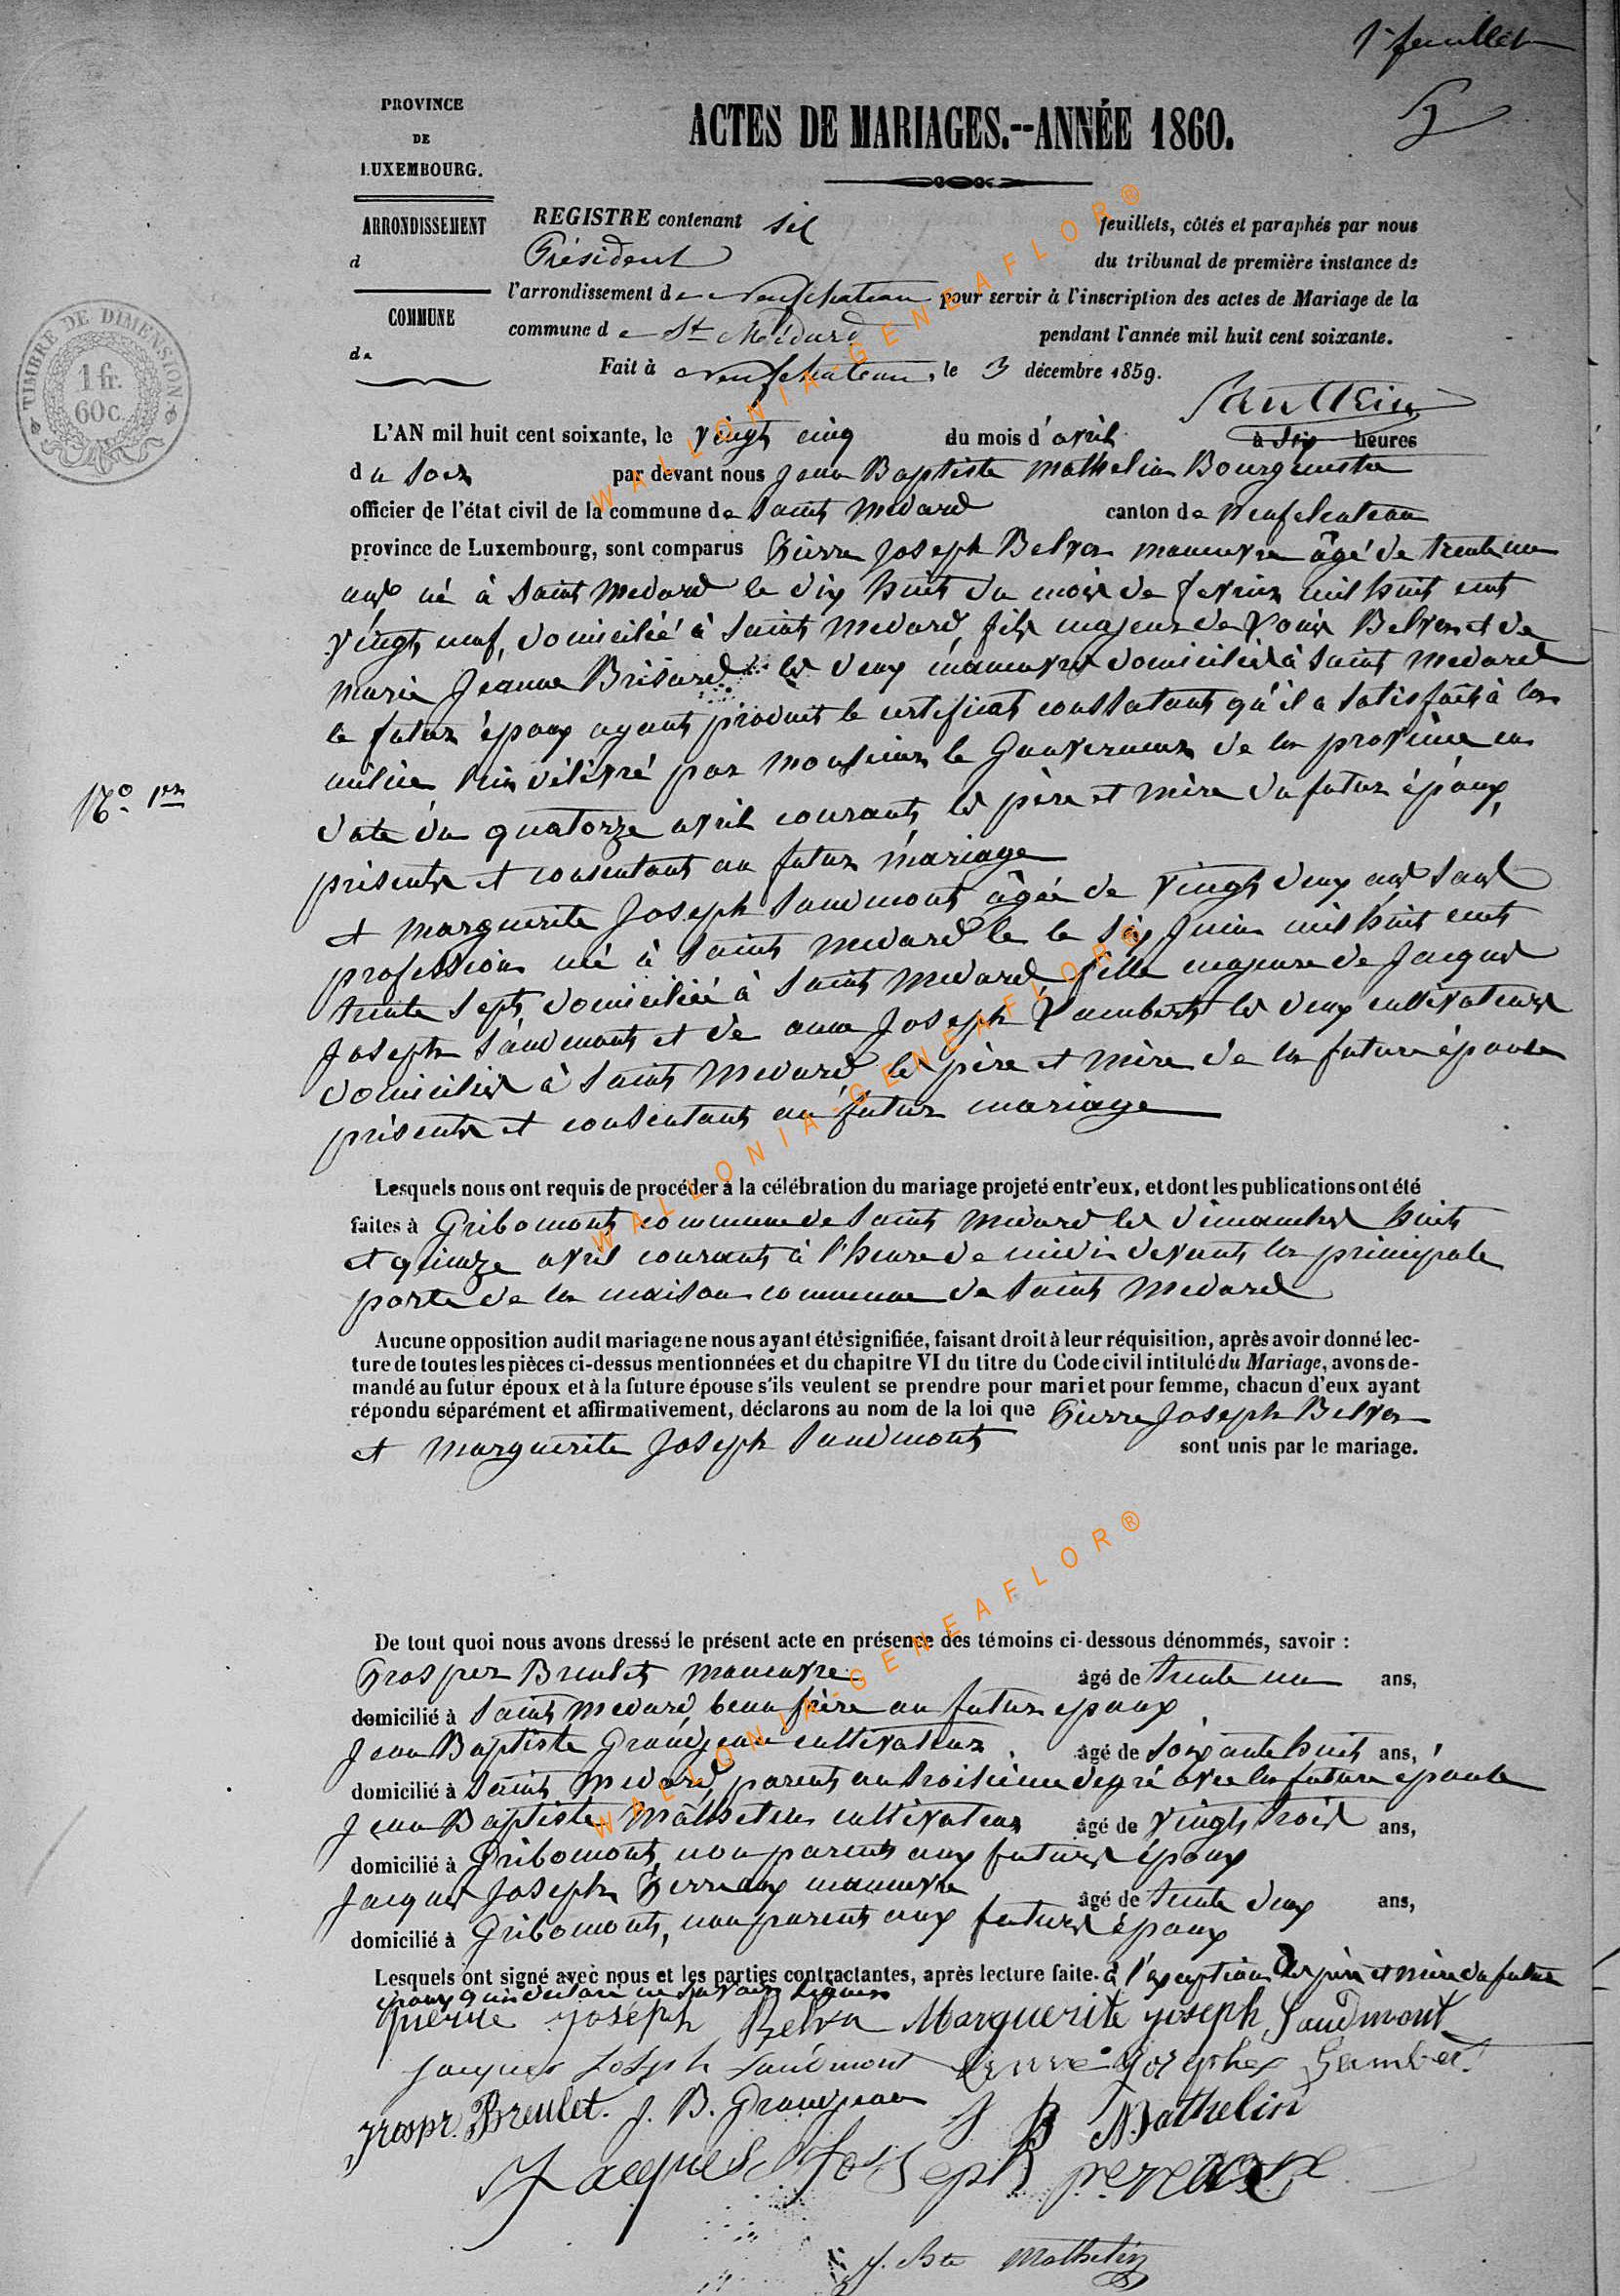 1r feuillet
PROVINCE
DE
LUXEMBOURG.
ACTES DE MARIAGES.--ANNÉE 1860.
ARRONDISSEMENT
d
COMMUNE
de
TIMBRE DE DIMENSION
1 fr.
60 c.
REGISTRE contenant six feuillets, côtés et paraphés par nous
Président du tribunal de première instance de
l'arrondissement de Neufchateau pour servir à l'inscription des actes de Mariage de la
commune de St Médard pendant l'année mil huit cent soixante.
Fait à Neufchateau, le 3 décembre 1859.
L'AN mil huit cent soixante, le vingt cinq du mois d'avril à six heures
du soir par devant nous Jean Baptiste Mathelin Bourgmestre
officier de l'état civil de la commune de Saint Medard canton de Neufchateau
province de Luxembourg, sont comparus Pierre Joseph Belva manœuvre âgé de trente un
ans né à Saint Medard le dix huit du mois de fevrier mil huit cent
vingt neuf, domicilié à Saint Medard, fils majeur de Louis Belva et de
Marie Jeanne Brisard les deux manœuvres domiciliés à Saint Medard
le futur époux ayant produit le certificat constatant qu'il a satisfait à la
milice lui délivré par Monsieur le Gouverneur de la province en
N° 1er
date du quatorze avril courant, les père et mère du futur époux,
présents et consentant au futur mariage
et Marguerite Joseph Saudmont âgée de vingt deux ans sans
profession né à Saint Medard le le six juin mil huit cent
trente sept, domiciliée à Saint Medard, fille majeure de Jacques
Joseph Saudmont et de anne Joseph Lambert les deux cultivateurs
domiciliés à Saint Medard, les père et mère de la future épouse
présents et consentant au futur mariage
Lesquels nous ont requis de procéder à la célébration du mariage projeté entr'eux, et dont les publications ont été
faites à Gribomont commune de Saint Medard les dimanches huit
et quinze avril courant à l'heure de midi devant la principale
porte de la maison commune de Saint Medard
Aucune opposition audit mariage ne nous ayant été signifiée, faisant droit à leur réquisition, après avoir donné lec-
ture de toutes les pièces ci-dessus mentionnées et du chapitre VI du titre du Code civil intitulé du Mariage, avons de-
mandé au futur époux et à la future épouse s'ils veulent se prendre pour mari et pour femme, chacun d'eux ayant
répondu séparément et affirmativement, déclarons au nom de la loi que Pierre Joseph Belva
et Marguerite Joseph Saudmont sont unis par le mariage.
De tout quoi nous avons dressé le présent acte en présence des témoins ci-dessous dénommés, savoir :
Prosper Breulet manœuvre âgé de trente un ans,
domicilié à Saint Medard, beau frère au futur époux
Jean Baptiste Grandjean cultivateur âgé de soixante huit ans,
domicilié à Saint Medard, parent au troisième degré avec la future épouse
Jean Baptiste Mathelin cultivateur âgé de vingt trois ans,
domicilié à Gribomont, non parent aux futurs époux
Jacques Joseph Perreaux manœuvre âgé de trente deux ans,
domicilié à Gribomont, non parent aux futurs époux
Lesquels ont signé avec nous et les parties contractantes, après lecture faite. à l'exception des père et mère du futur
époux qui ont déclaré ne savoir signer
pierre joseph Belva Marguerite joseph Saudmont
Jacques Joseph Saudmont Anne-josephe Lambert
prospr. Breulet. J. B. Grandjean J B Mathelin
Jacques Joseph
J. Bte Mathelin
WALLONIA-GENEAFLOR®
WALLONIA-GENEAFLOR®
WALLONIA-GENEAFLOR®